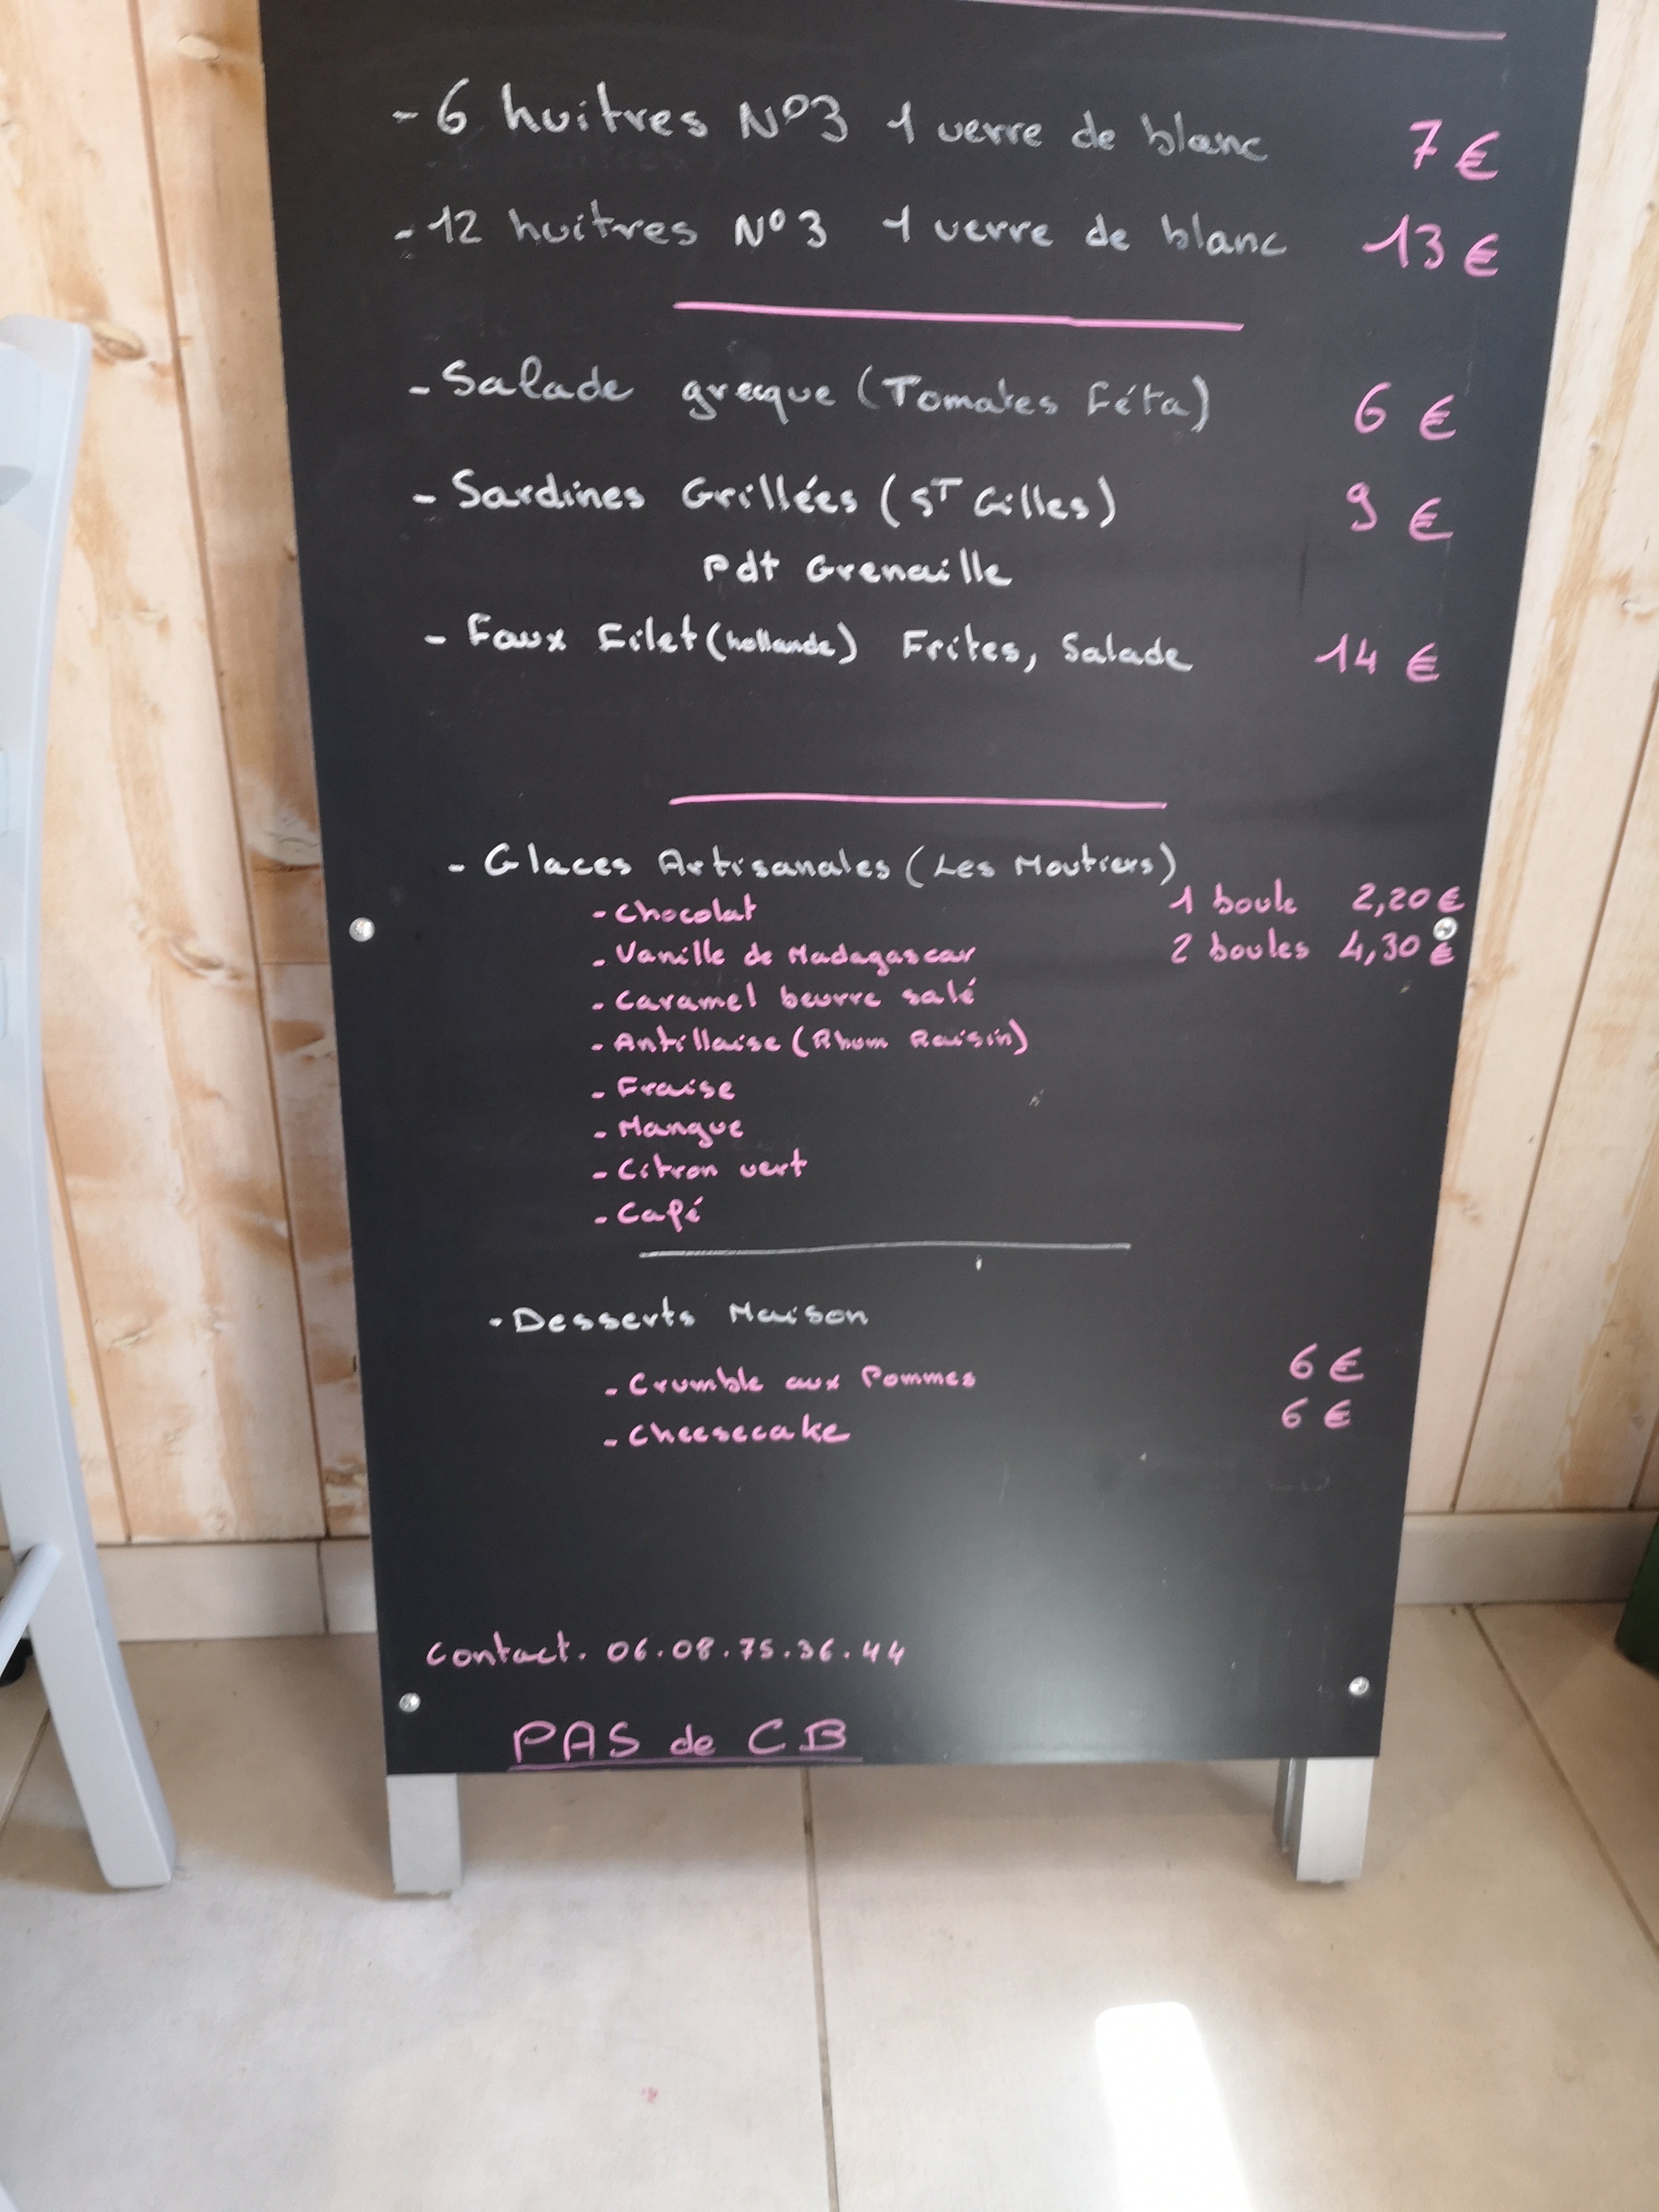 - 6 huitres N°3 1 verre de blanc 7 €
- 12 huitres N°3 1 verre de blanc 13 €
- Salade grecque (Tomates Féta) 6 €
- Sardines Grillées (ST Gilles) 9 €
Pdt Grenaille
- Faux Filet (hollande) Frites, Salade 14 €
- Glaces Artisanales (Les Moutiers)
- Chocolat 1 boule 2,20 €
- Vanille de Madagascar 2 boules 4,30 €
- Caramel beurre salé
- Antillaise (Rhum Raisin)
- Fraise
- Mangue
- Citron vert
- Café
- Desserts Maison
- Crumble aux Pommes 6 €
- Cheesecake 6 €
Contact. 06.08.75.36.44
PAS de CB